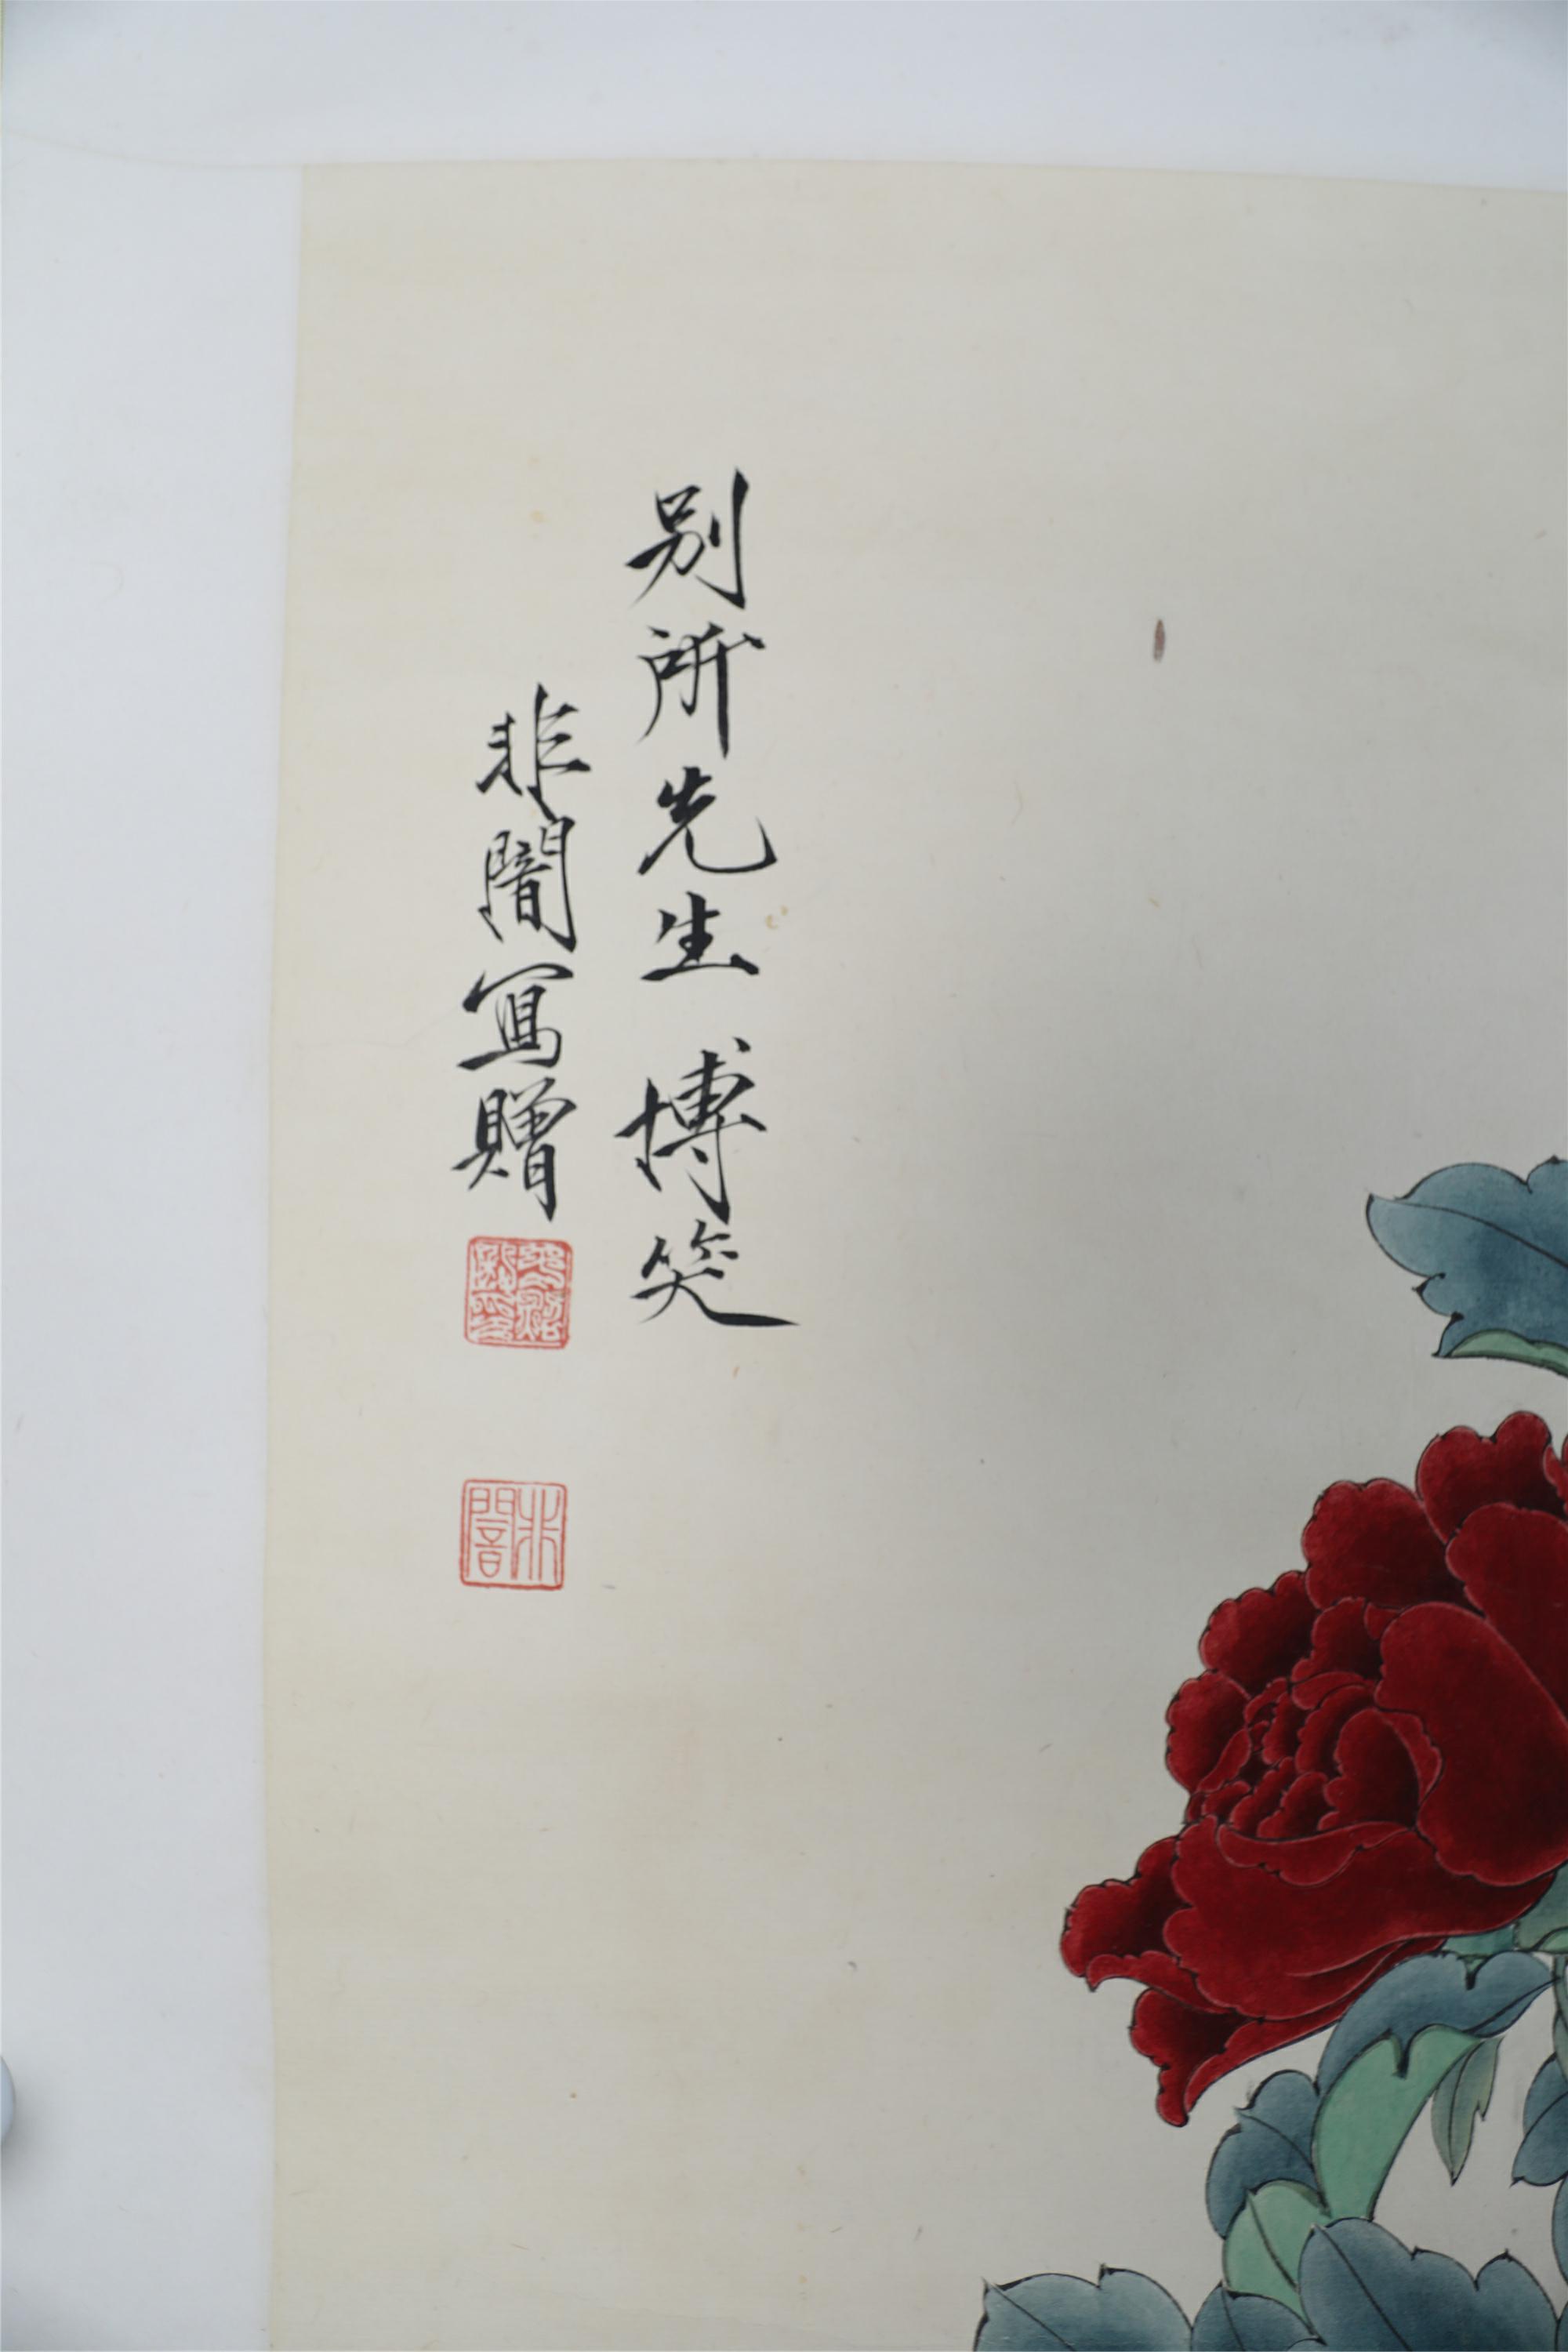 別所先生博笑
非闇寫贈
非闇